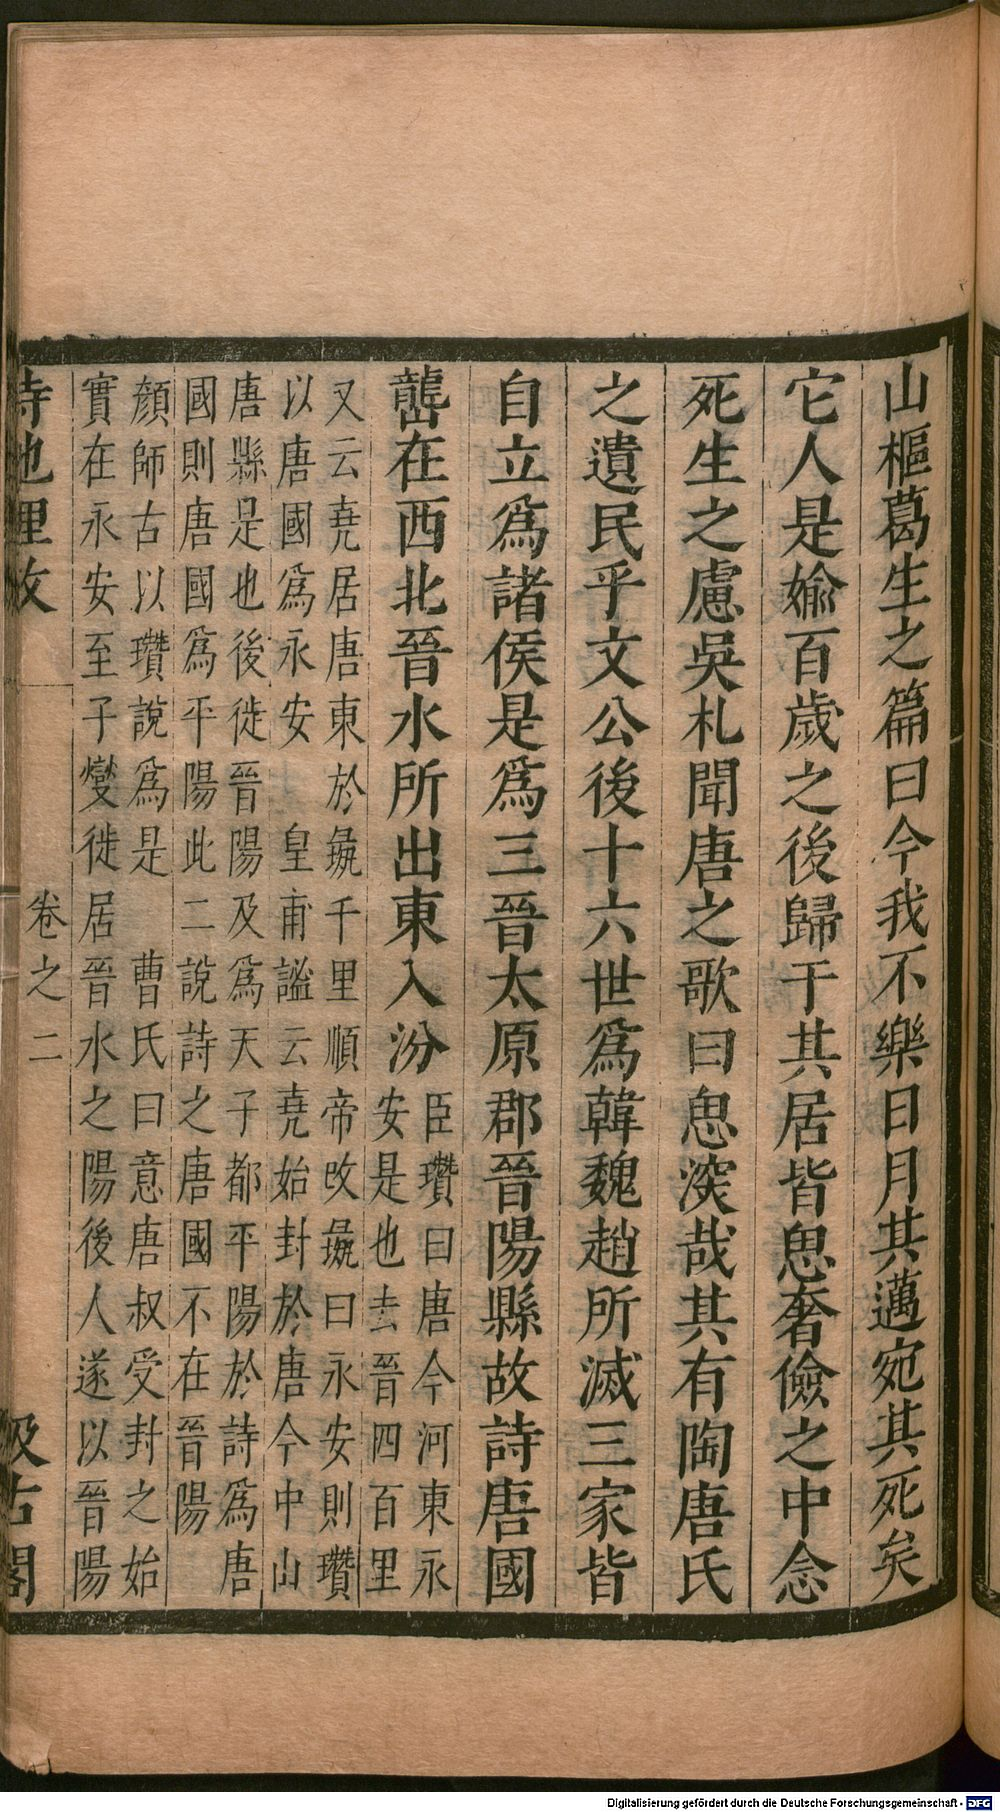 山樞葛生之篇曰今我不樂日月其邁宛其死矣
它人是媮百歲之後歸于其居皆思奢儉之中念
死生之慮吳札聞唐之歌曰思深哉其有陶唐氏
之遺民乎文公後十六世爲韓魏趙所滅三家皆
自立爲諸侯是爲三晉太原郡晉陽縣故詩唐國
龍山在西北晉水所出東入汾
臣瓚曰唐今河東永
安是也去晉四百里
又云堯居唐東於彘千里順帝改彘曰永安則瓚
以唐國爲永安　皇甫謐云堯始封於唐今中山
唐縣是也後徙晉陽及爲天子都平陽於詩爲唐
國則唐國爲平陽此二說詩之唐國不在晉陽
顏師古以瓚說爲是　曹氏曰意唐叔受封之始
實在永安至子燮徙居晉水之陽後人遂以晉陽
詩地理攷　卷之二　汲古閣
Digitalisierung gefördert durch die Deutsche Forschungsgemeinschaft - DFG